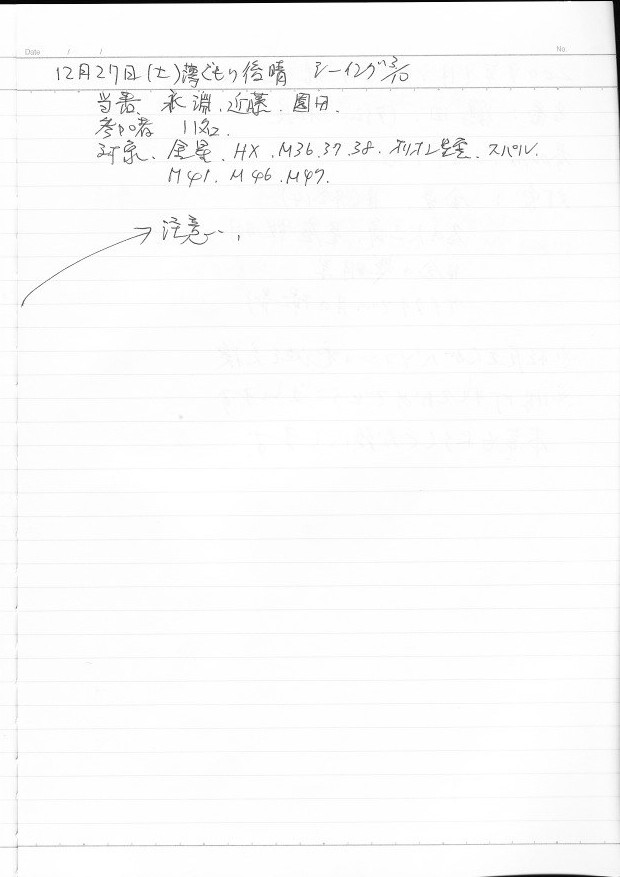 Date / /
No.
12月27日(土)薄ぐもり後晴 シーイング3/10
当番、永淵、近藤、園田.
参加者 11名.
対象、金星、HX、M36.37.38、オリオン星雲、スバル.
M41. M46. M47.
注意